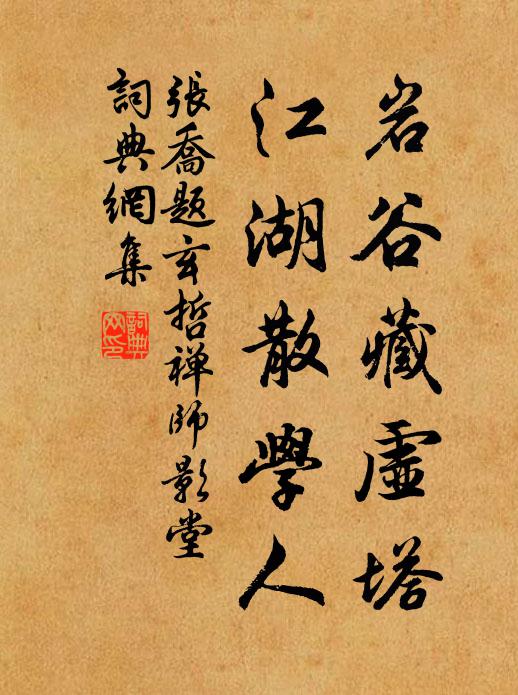 岩谷藏虛塔
江湖散學人
張喬題玄哲禅師影堂
詞典網集
詞典网印